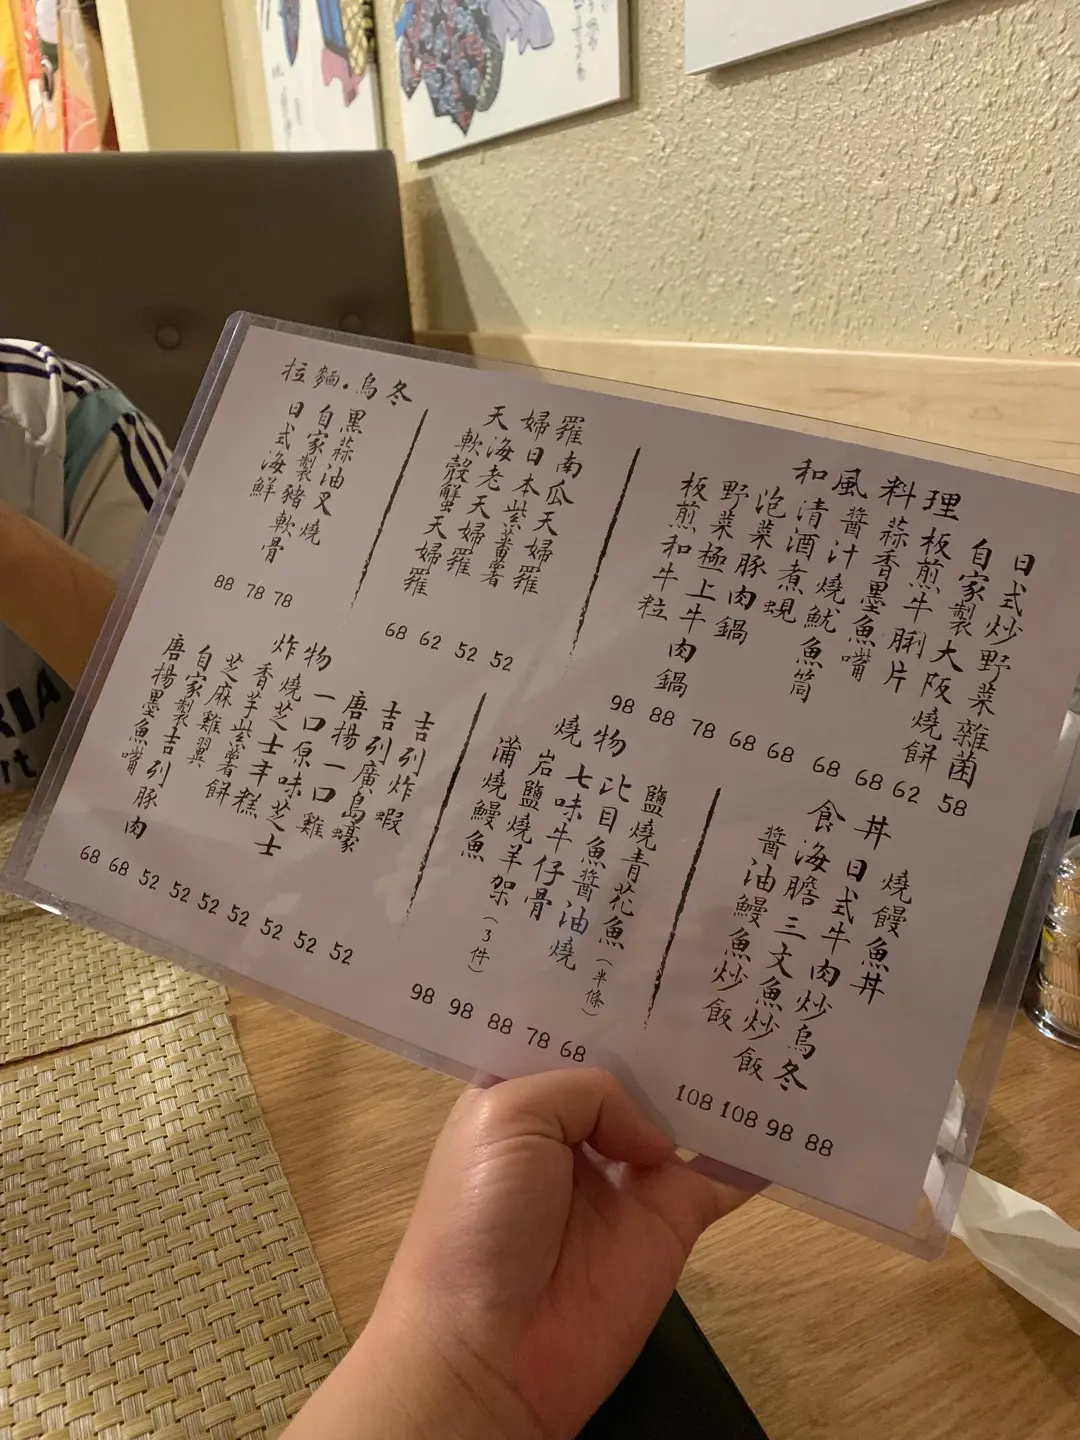 和風料理
日式炒野菜雜菌
自家製大阪燒餅
板煎牛脷片
蒜香墨魚嘴
醬汁燒魷魚筒
清酒煮蜆
泡菜豚肉鍋
野菜極上牛肉鍋
板煎和牛粒
98 88 78 68 68 68 68 62 58
天婦羅
南瓜天婦羅
日本紫蕃薯天婦羅
海老天婦羅
軟殼蟹天婦羅
68 62 52 52
拉麵．烏冬
黑蒜油叉燒
自家製豬軟骨
日式海鮮
88 78 78
食丼
燒饅魚丼
日式牛肉炒烏冬
海膽三文魚炒飯
醬油鰻魚炒飯
108 108 98 88
燒物
鹽燒青花魚（半條）
比目魚醬油燒
七味牛仔骨
岩鹽燒羊架（3件）
蒲燒鰻魚
98 98 88 78 68
炸物
吉列炸蝦
吉列廣島蠔
唐揚一口雞
一口原味芝士
燒芝士年糕
香芋紫薯餅
芝麻雞翼
自家製吉列豚肉
唐揚墨魚嘴
68 68 52 52 52 52 52 52 52